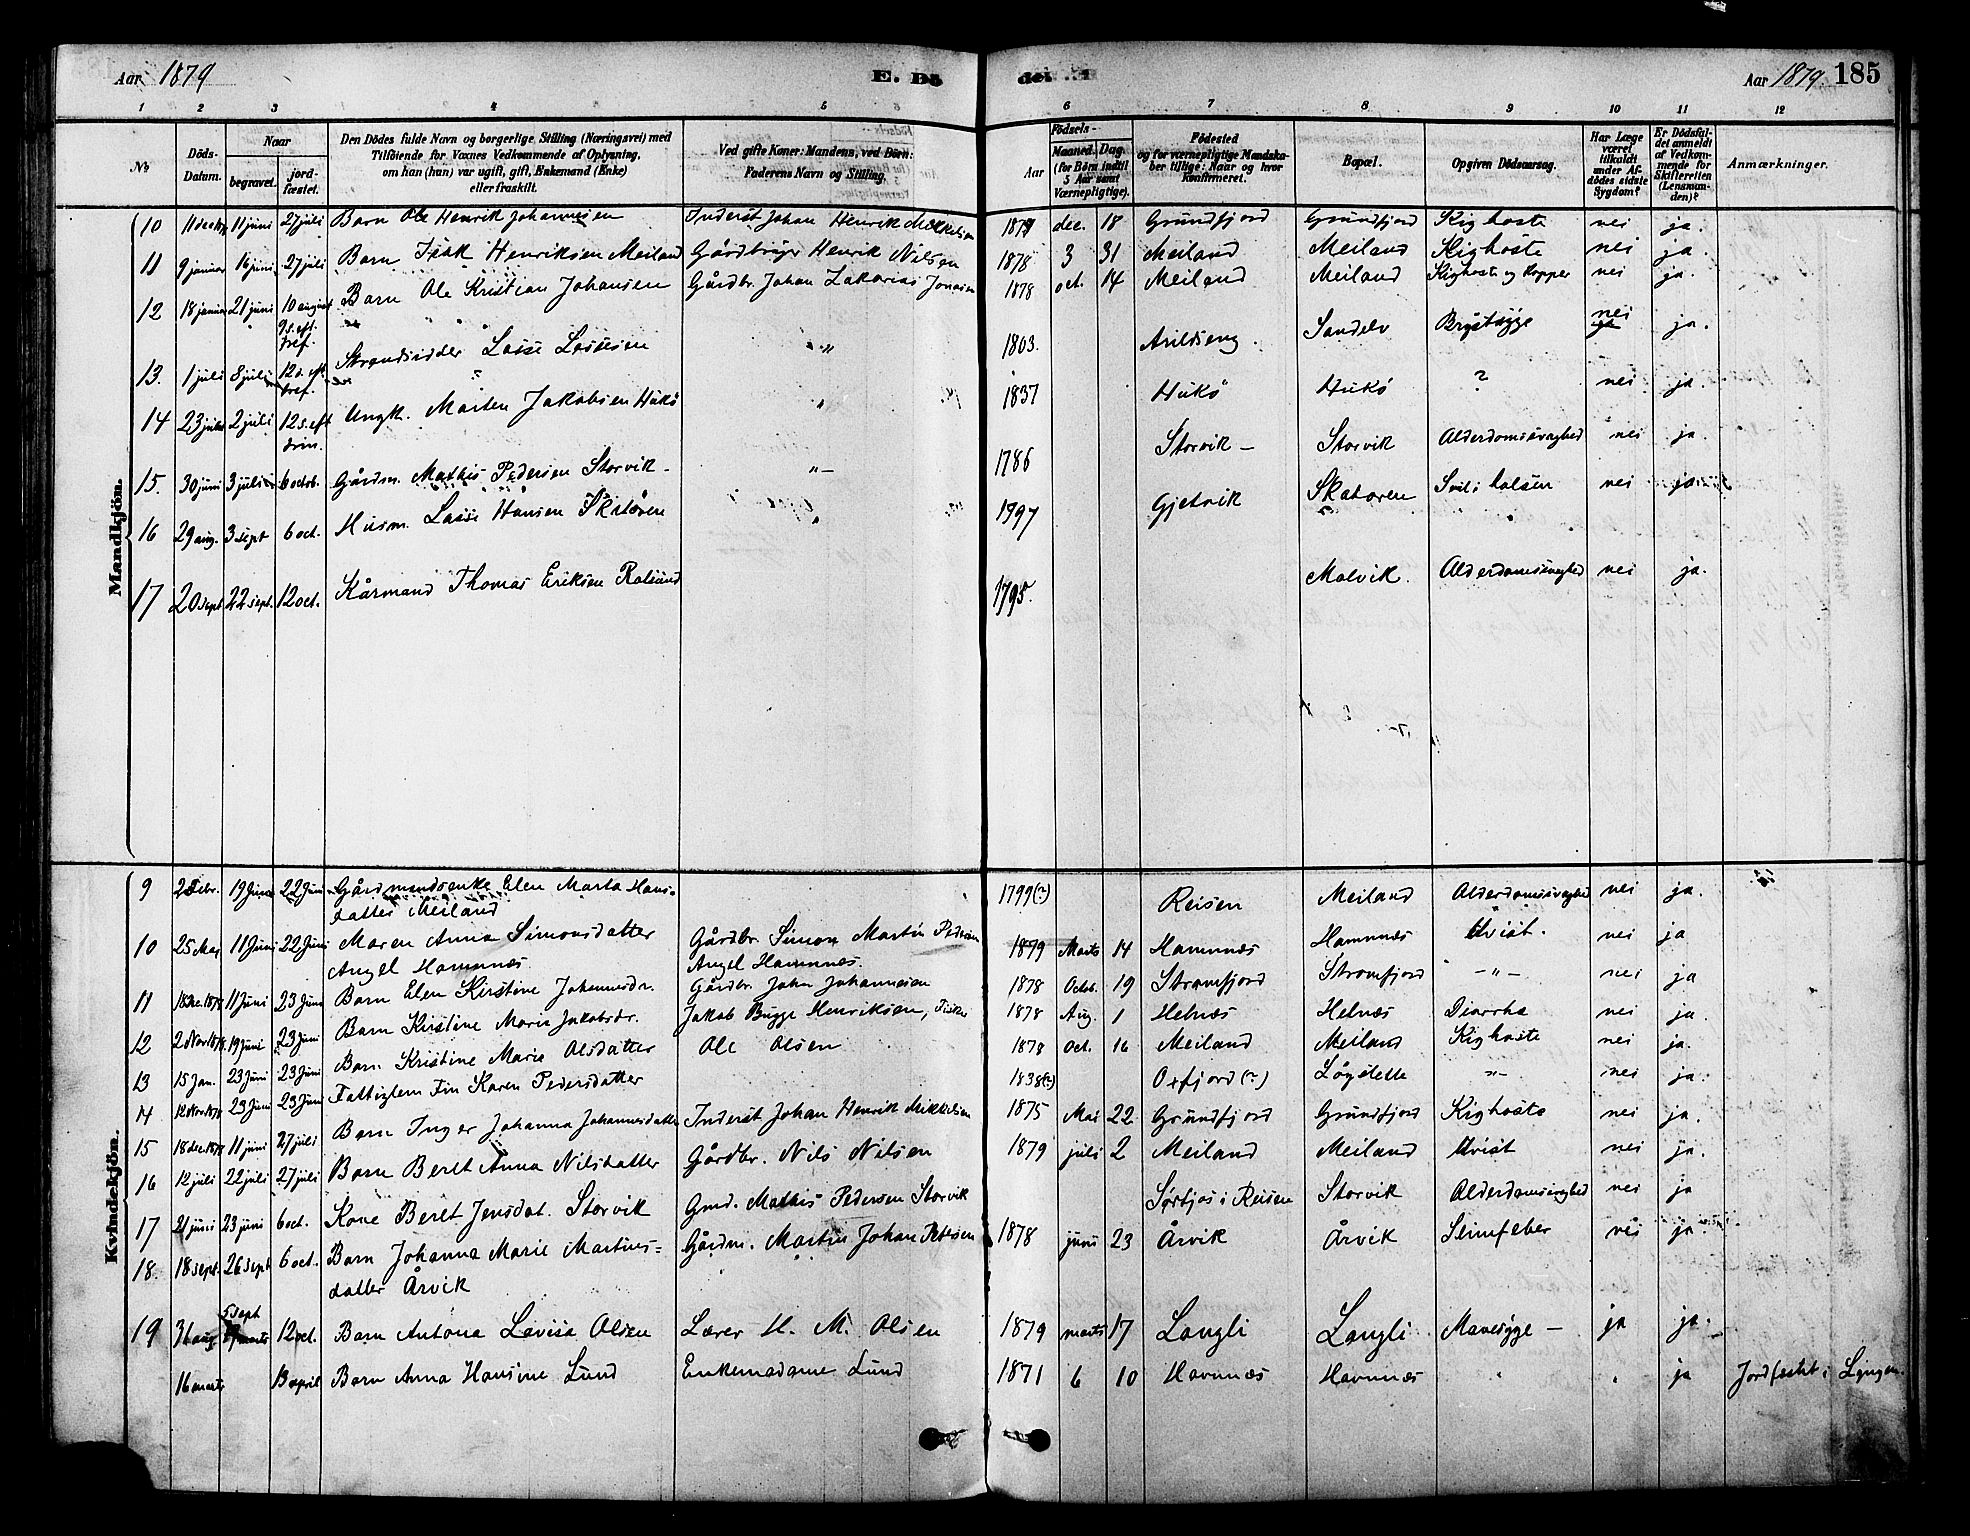 Aar 1879 E. Dö
döde. Aar 1879. 185
1 2 3 4 5
6 7 8 9 10 11 12
No
Döds-Datum.
Naar
begravet.
jord-fæstet.
Den Dödes fulde Navn og borgerlige Stilling (Næringsvei) med
Tilföiende for Voxnes Vedkommende af Oplysning,
om han (hun) var ugift, gift, Enkemand (Enke)
eller fraskilt.
Ved gifte Koner: Mandens, ved Börn:
Faderens Navn og Stilling.
Födsels-
Aar
Maaned. Dag.
(for Börn indtil
5 Aar samt
Værnepligtige).
Födested
og for værnepligtige Mandska-
ber tillige: Naar og hvor
Konfirmeret.
Bopæl.
Opgiven Dödsaarsag.
Har Læge
været
tilkaldt
under Af-
dödes sidste
Sygdom?
Er Dödsfal-
det anmeldt
af Vedkom-
mende for
Skifteretten
(Lensman-
den)?
Anmærkninger.
Mandkjön.
10 11 dec 11 juni 27 juli Barn Ole Henrik Johannesen Inderst Johan Henrik Mikkelsen 1879 dec. 18 Grundfjord Grundfjord Kighoste nei ja.
11 9 januar 16 juni 27 juli Barn Isak Henriksen Meiland Gårdbruger Henrik Nilsen 1878 3 31 Meiland Meiland Kighoste nei ja.
12 18 januar 21 juni 10 august Barn Ole Kristian Johansen Gårdbr. Johan Zakarias Jonasen 1878 oct. 14 Meiland Meiland Kighoste og Kopper nei ja.
9 s. eft. tref.
13. 1 juli 8 juli 12 s. eft. tref. Strandsidder Lasse Lassesen " 1803. Arildseng. Sandelv Brystsyge nei ja.
14 23 juli 2 juli 12 s. eft trin. Ungk. Morten Jakobsen Hukö " 1837 Hukö Hukö ? nei ja.
15. 30 juni 3 juli 6 octob. Gårdm. Mathis Pedersen Storvik - " 1786 Storvik - Storvik Alderdomssvaghed nei ja.
16 29 aug. 3 sept 6 oct. Husm. Lasse Hansen Skatören " 1797 Gjetvik Skatoren Svul i halsen nei ja
17 20 sept 22 sept. 12 oct. Kårmand Thomas Eriksen Rolsund 1795. Malvik. Alderdomsvaghed nei ja.
Kvindekjön.
9 2 Febr. 19 Juni 22 Juni Gårdmandsenke Elen Marta Hans- 1799(?) Reisen Meiland Alderdomssvaghed nei ja.
datter Meiland
10 25 Mai 11 Juni 22 Juni Maren Anna Simonsdatter Gårdbr. Simon Martin Pedersen 1879 Marts 14 Hamnnæs Hamnnæs Uvist. nei ja
Angel Hamnnæs Angel Hamnnæs.
11 18 Dec. 1878 11 Juni 23 Juni Barn Elen Kirstine Johannesdr. Gårdbr. John Johannesen 1878 Octob. 19 Stromfjord Stromfjord -"- nei ja
12 2 Nov 1878 19 juni 23 Juni Barn Kirstine Marie Jakobsdr. Jakob Bugge Henriksen, Fisker 1878 Aug. 1 Helnæs Helnæs Diarrhe nei ja.
13 15 Jan. 23 Juni 23 Juni Barn Kristine Marie Olsdatter Ole Olsen 1878 Oct. 16 Meiland Meiland Kighoste nei ja.
14 12 Nov 1878 23 Juni 23 Juni Fattiglem Fin Karen Pedersdatter 1838(?) Oxfjord(?) Lögslette "- nei ja.
15 18 dec. 1878 11 juni 27 juli Barn Inger Johanna Johannesdatter Inderst Johan Henrik Mikkelsen 1875 Mai 22 Grundfjord Grundfjord Kighoste nei ja.
16 12 juli 22 juli 27 juli Barn Beret Anna Nilsdatter Gårdbr. Nils Nilsen 1879 juli 2 Meiland Meiland Uvist nei ja.
17 21 juni 23 juni 6 oct. Kone Beret Jensdat. Storvik Gmd. Mathis Pedersen Storvik Sørfjos i Reisen Storvik Alderdomsvaghed nei ja
18. 18 sept. 26 sept 6 oct. Barn Johanna Marie Martins= Gårdm. Martin Johan Petersen 1878 juni 23 Årvik Årvik Slimfeber nei ja.
datter Årvik
19 31 aug 5 sept 12 oct. Barn Antona Lovisa Olsen Lærer H. M. Olsen 1879 marts 17 Langli Langli Mavesyge - ja ja.
16 marts 13 april Barn Anna Hansine Lund Enkemadame Lund 1871 6 10 Havnnæs Havnnæs " " ja Jordfæstet i Lyngen.